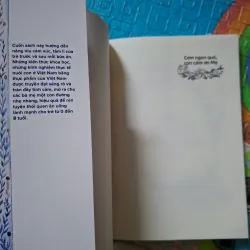 Cuốn sách này hướng dẫn
nâng niu cảm xúc, tâm lí của
trẻ trước và sau mỗi bữa ăn.
Những kiến thức khoa học,
những kinh nghiệm thực tế
nuôi con ở Việt Nam bằng
thực phẩm của Việt Nam
được truyền đạt sáng rõ và
tràn đầy tình cảm, mở ra cho
các bà mẹ một con đường
nhẹ nhàng, hiệu quả để rèn
luyện thói quen ăn uống
lành mạnh cho trẻ từ 0 đến
8 tuổi.
Cơm ngon quá,
con cảm ơn Mẹ